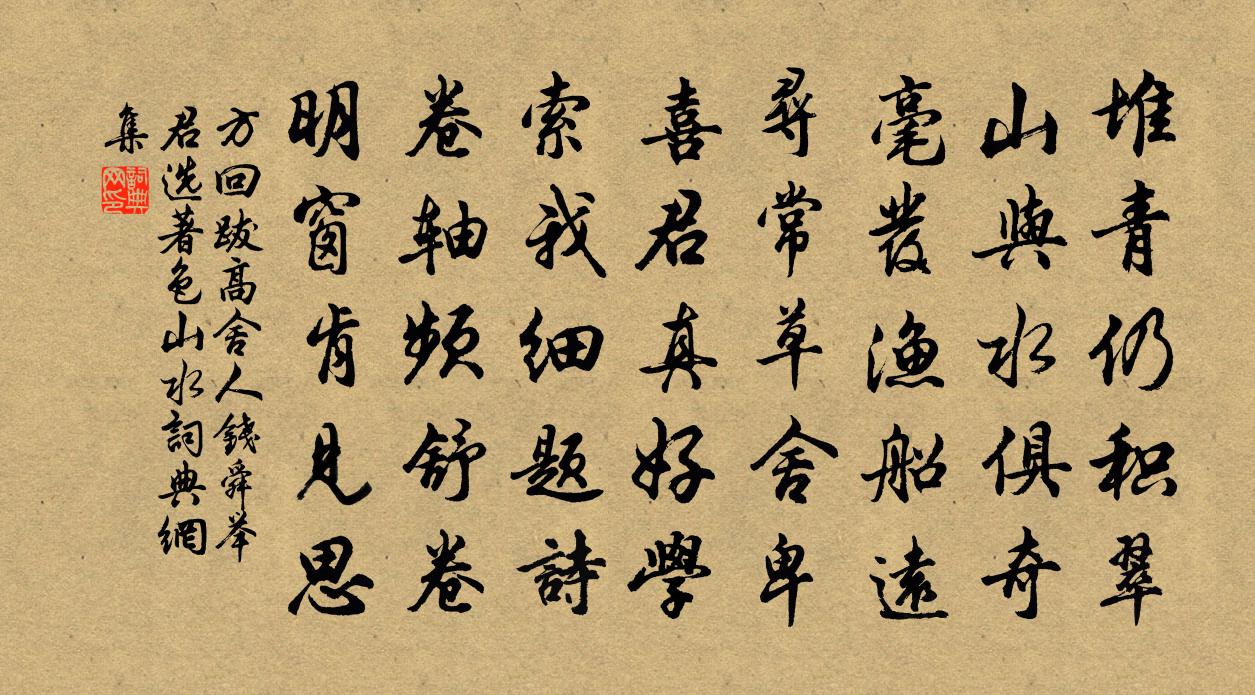 堆青仍积翠
山與水俱奇
毫發漁船遠
尋常草舍卑
喜君真好學
索我细题詩
卷軸頻舒卷
明窗肯見思
方回跋高舍人錢舜举
君选著色山水詞典網
集
詞典网印